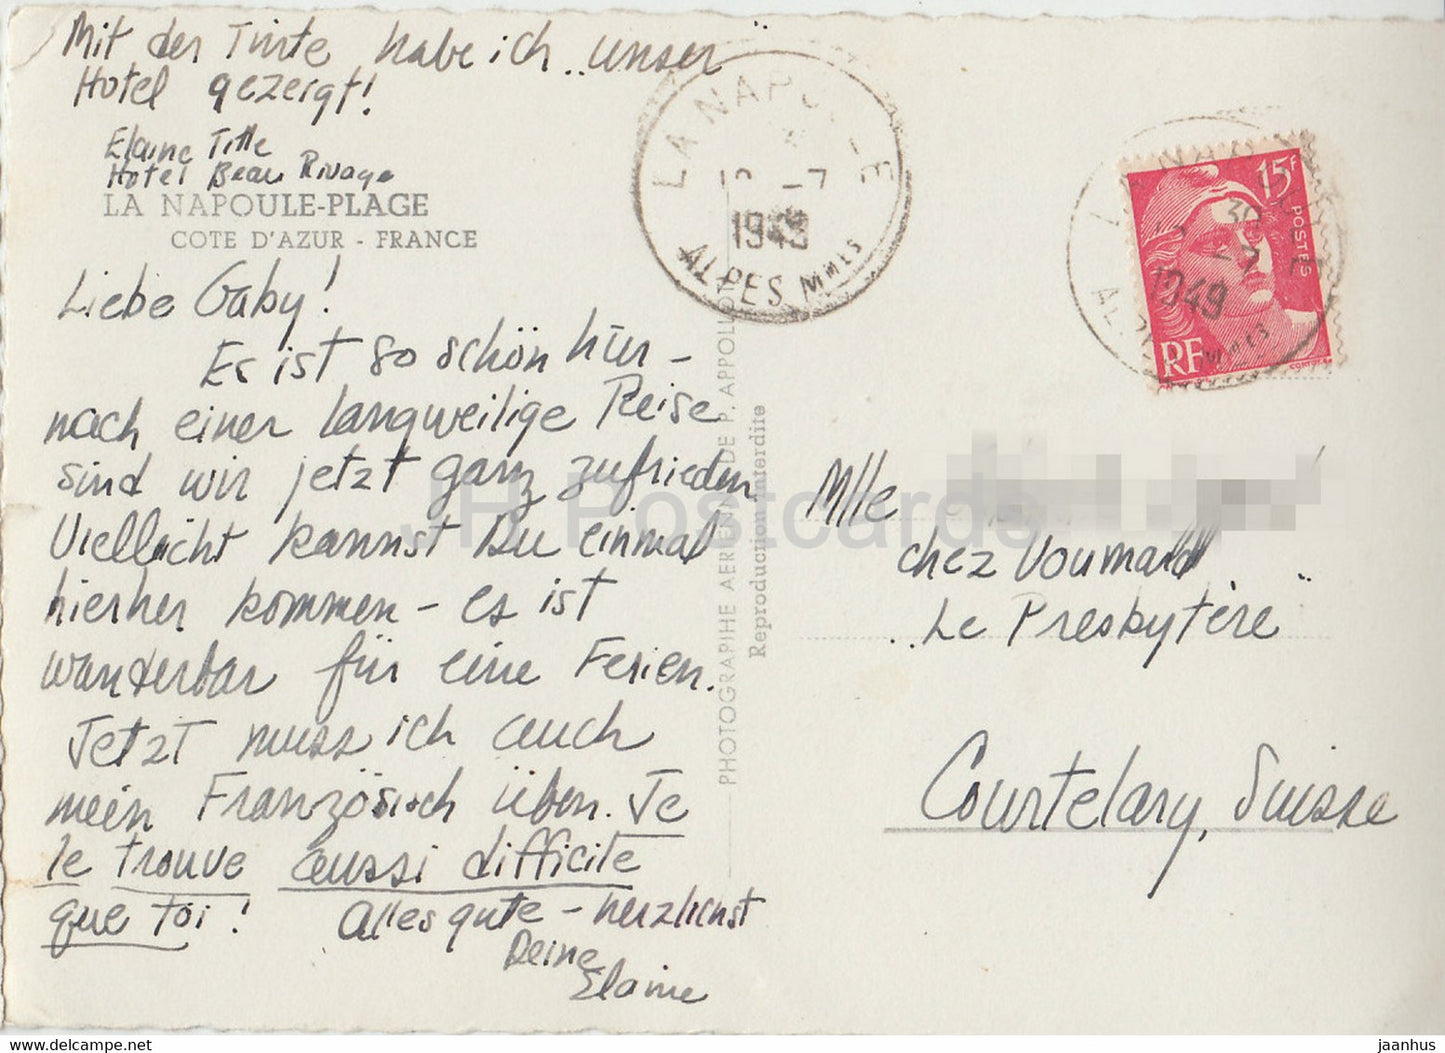 Mit der Tinte habe ich „unser"
Hotel gezeigt!
Elaine Title
Hotel Beau Rivage
LA NAPOULE-PLAGE
COTE D'AZUR - FRANCE
Liebe Gaby!
Es ist so schön hier -
nach einer langweilige Reise
sind wir jetzt ganz zufrieden
Vielleicht kannst Du einmal
hierher kommen - es ist
wunderbar für eine Ferien.
Jetzt muss ich auch
mein Französisch üben. Je
le trouve aussi difficile
que toi! Alles gute - herzlichst
Deine
Elaine
PHOTOGRAPHIE AERIENNE DE P. APPOLLOT
Reproduction interdite
LA NAPOULE
7
1949
ALPES Mmes
15F
POSTES
RF
30
-7
1949
Mlle
chez Voumard
„Le Presbytère"
Courtelary, Suisse
JH Postcards
eu-cards-marketplace.com
jaanhus